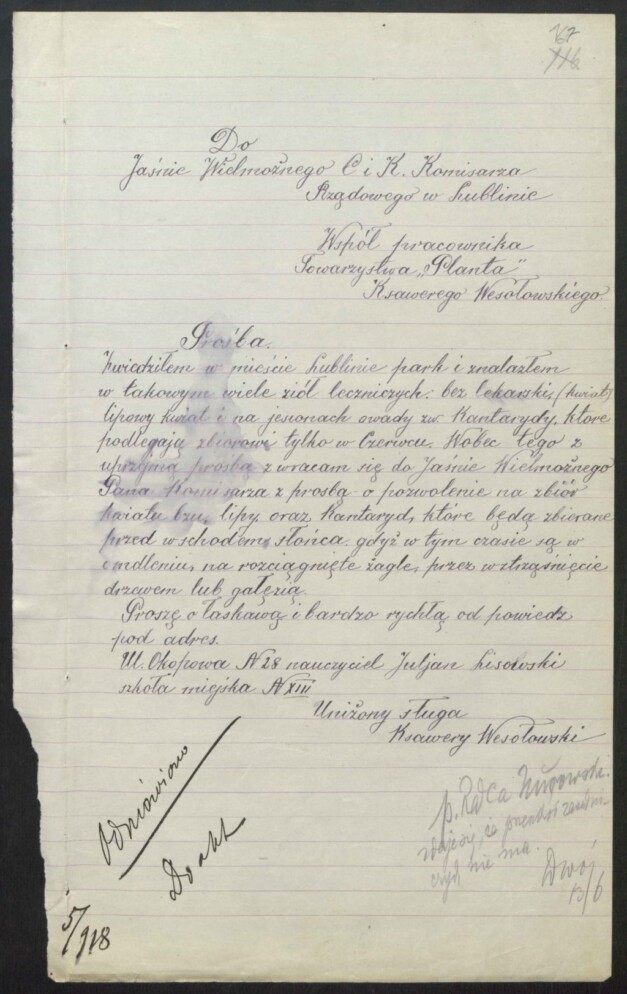 67
116
Do
Jaśnie Wielmożnego C i K. Komisarza
Rządowego w Lublinie
Współ pracownika
Towarzystwa „Planta"
Ksawerego Wesołowskiego
Prośba.
Zwiedziłem w mieście Lublinie park i znalazłem
w takowym wiele ziół leczniczych: bez lekarski, (kwiat)
lipowy kwiat i na jesionach owady zw. Kantarydy, które
podlegają zbiorowi tylko w Czerwcu. Wobec tego z
uprzejmą prośbą zwracam się do Jaśnie Wielmożnego
Pana Komisarza z prosbą o pozwolenie na zbiór
kwiatu bzu, lipy, oraz Kantaryd, które będą zbierane
przed wschodem słońca, gdyż w tym czasie są w
omdleniu, na rozciągnięte żagle, przez wstrząśnięcie
drzewem lub gałęzią.
Proszę o łaskawą i bardzo rychłą od powiedz
pod adres.
Ul. Okopowa N 28 nauczyciel Juljan Lisowski
szkoła miejska N XIII
Uniżony sługa
Ksawery Wesołowski
Odmówiono
Do akt
5/918
p. Radca
nie ma.
13/6